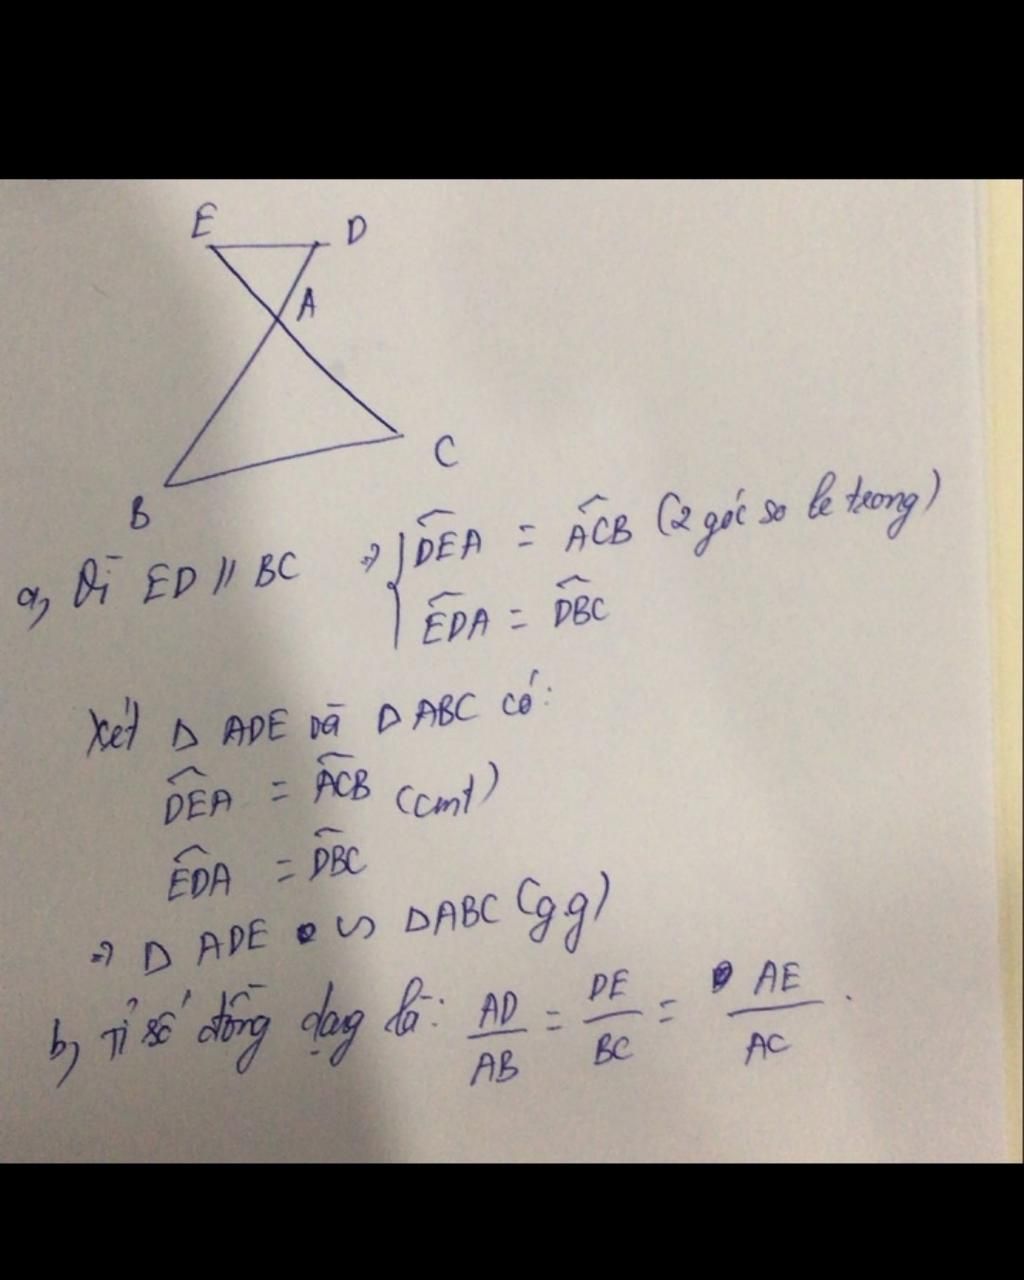 E
D
A
C
B
a, Vì ED // BC ⇒ { \widehat{DEA} = \widehat{ACB} (2 góc so le trong)
\widehat{EDA} = \widehat{DBC}
Xét Δ ADE và Δ ABC có:
\widehat{DEA} = \widehat{ACB} (cmt)
\widehat{EDA} = \widehat{DBC}
⇒ Δ ADE ∽ ΔABC (g.g)
b, Tỉ số đồng dạng là: \frac{AD}{AB} = \frac{DE}{BC} = \frac{AE}{AC}.